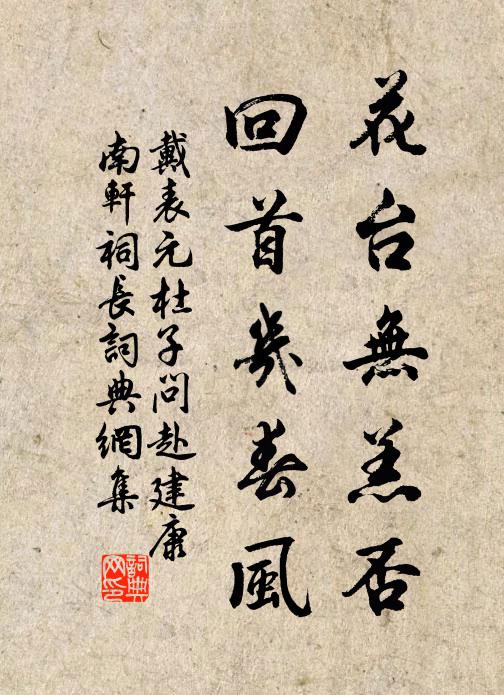 花台無恙否
回首幾春風
戴表元杜子問赴建康
南軒祠長詞典網集
詞典網印